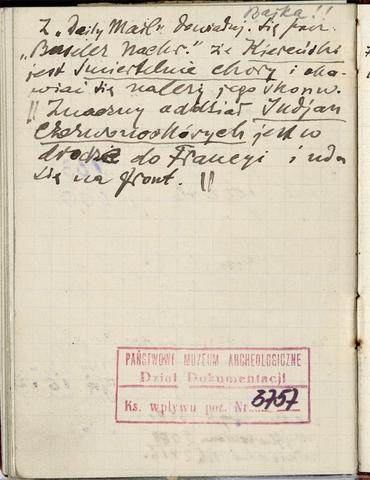 Bajka!!
Z „Daily Mail" dowiaduj. się pism.
„Basler Nachr." że Kiereński
jest śmiertelnie chory i oba-
wiać się należy jego skonu.
|| Znaczny oddział Indjan
Czerwonoskórych jest w
drodze do Francyi i uda
się na front. ||
PAŃSTWOWE MUZEUM ARCHEOLOGICZNE
Dział Dokumentacji
Ks. wpływu poz. Nr. 3757